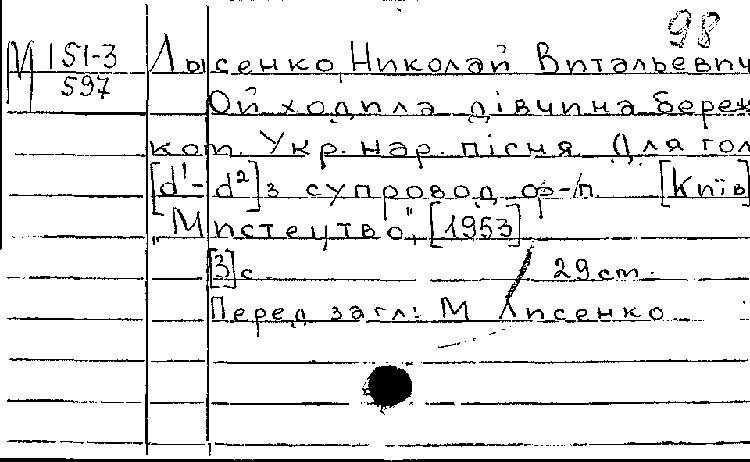 98
М 151-3 Лысенко, Николай Витальевич
597 Ой ходила дівчина береж
ком. Укр. нар. пісня Для гол
[d¹-d²] з супровод. ф-п. [Київ]
„Мистецтво", [1953]
[3] с. 29 cm.
Перед загл: М Лисенко